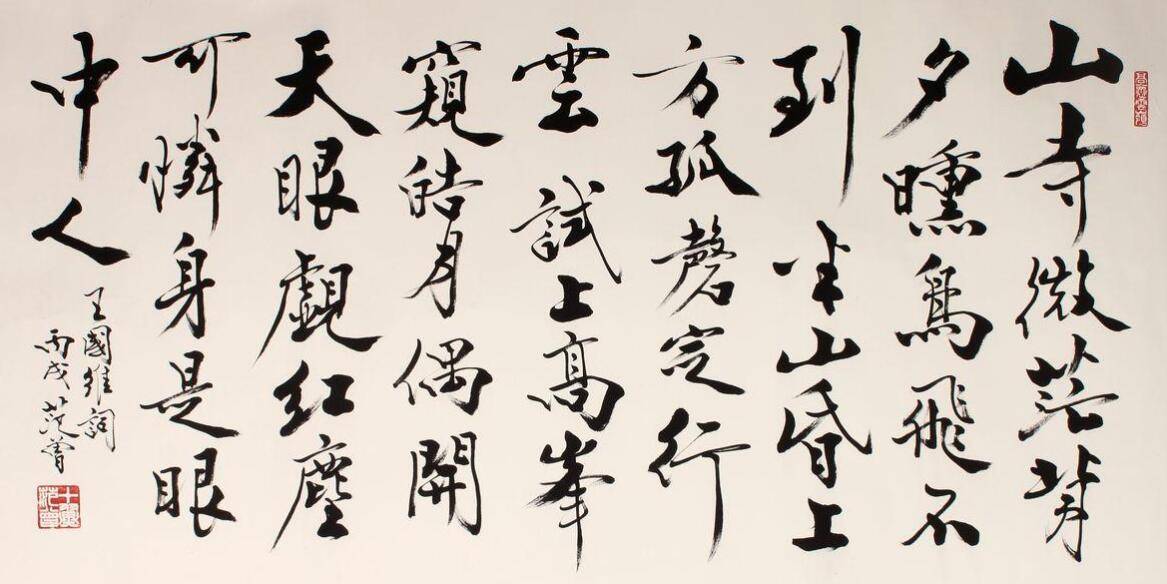 山寺微茫背
夕曛鳥飛不
到半山昏上
方孤磬定行
雲試上高峯
窺皓月偶開
天眼覷紅塵
可憐身是眼
中人
王國維詞
丙戌范曾
十翼
范曾